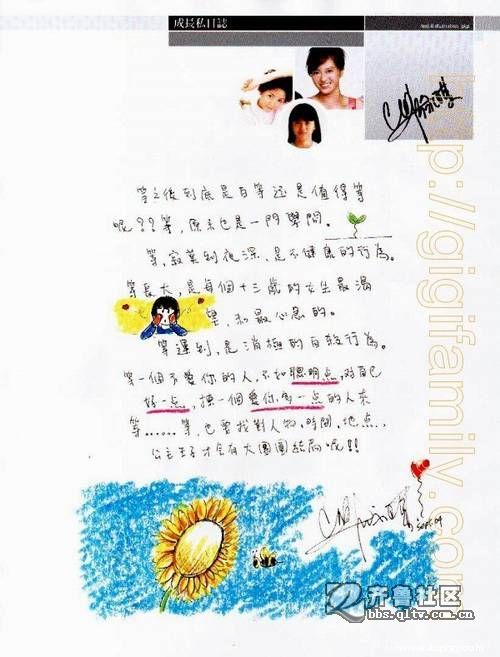 成長私日誌
等之後到底是白等还是值得等
呢??等,原來也是一門學問。
等,寂莫到夜深,是不健康的行為。
等長大,是每個十三歲的女生最渴
望,和最心急的。
等遲到,是消極的自殺行為。
等一個不愛你的人,不如聰明点,对自己
好一点,換一個愛你多一点的人來
等......等,也要找对人物,時間,地点,
公主王子才会有大團圓結局呢!!
Sept 04
http://gigifamily.com
齐鲁社区
bbs.qltv.com.cn